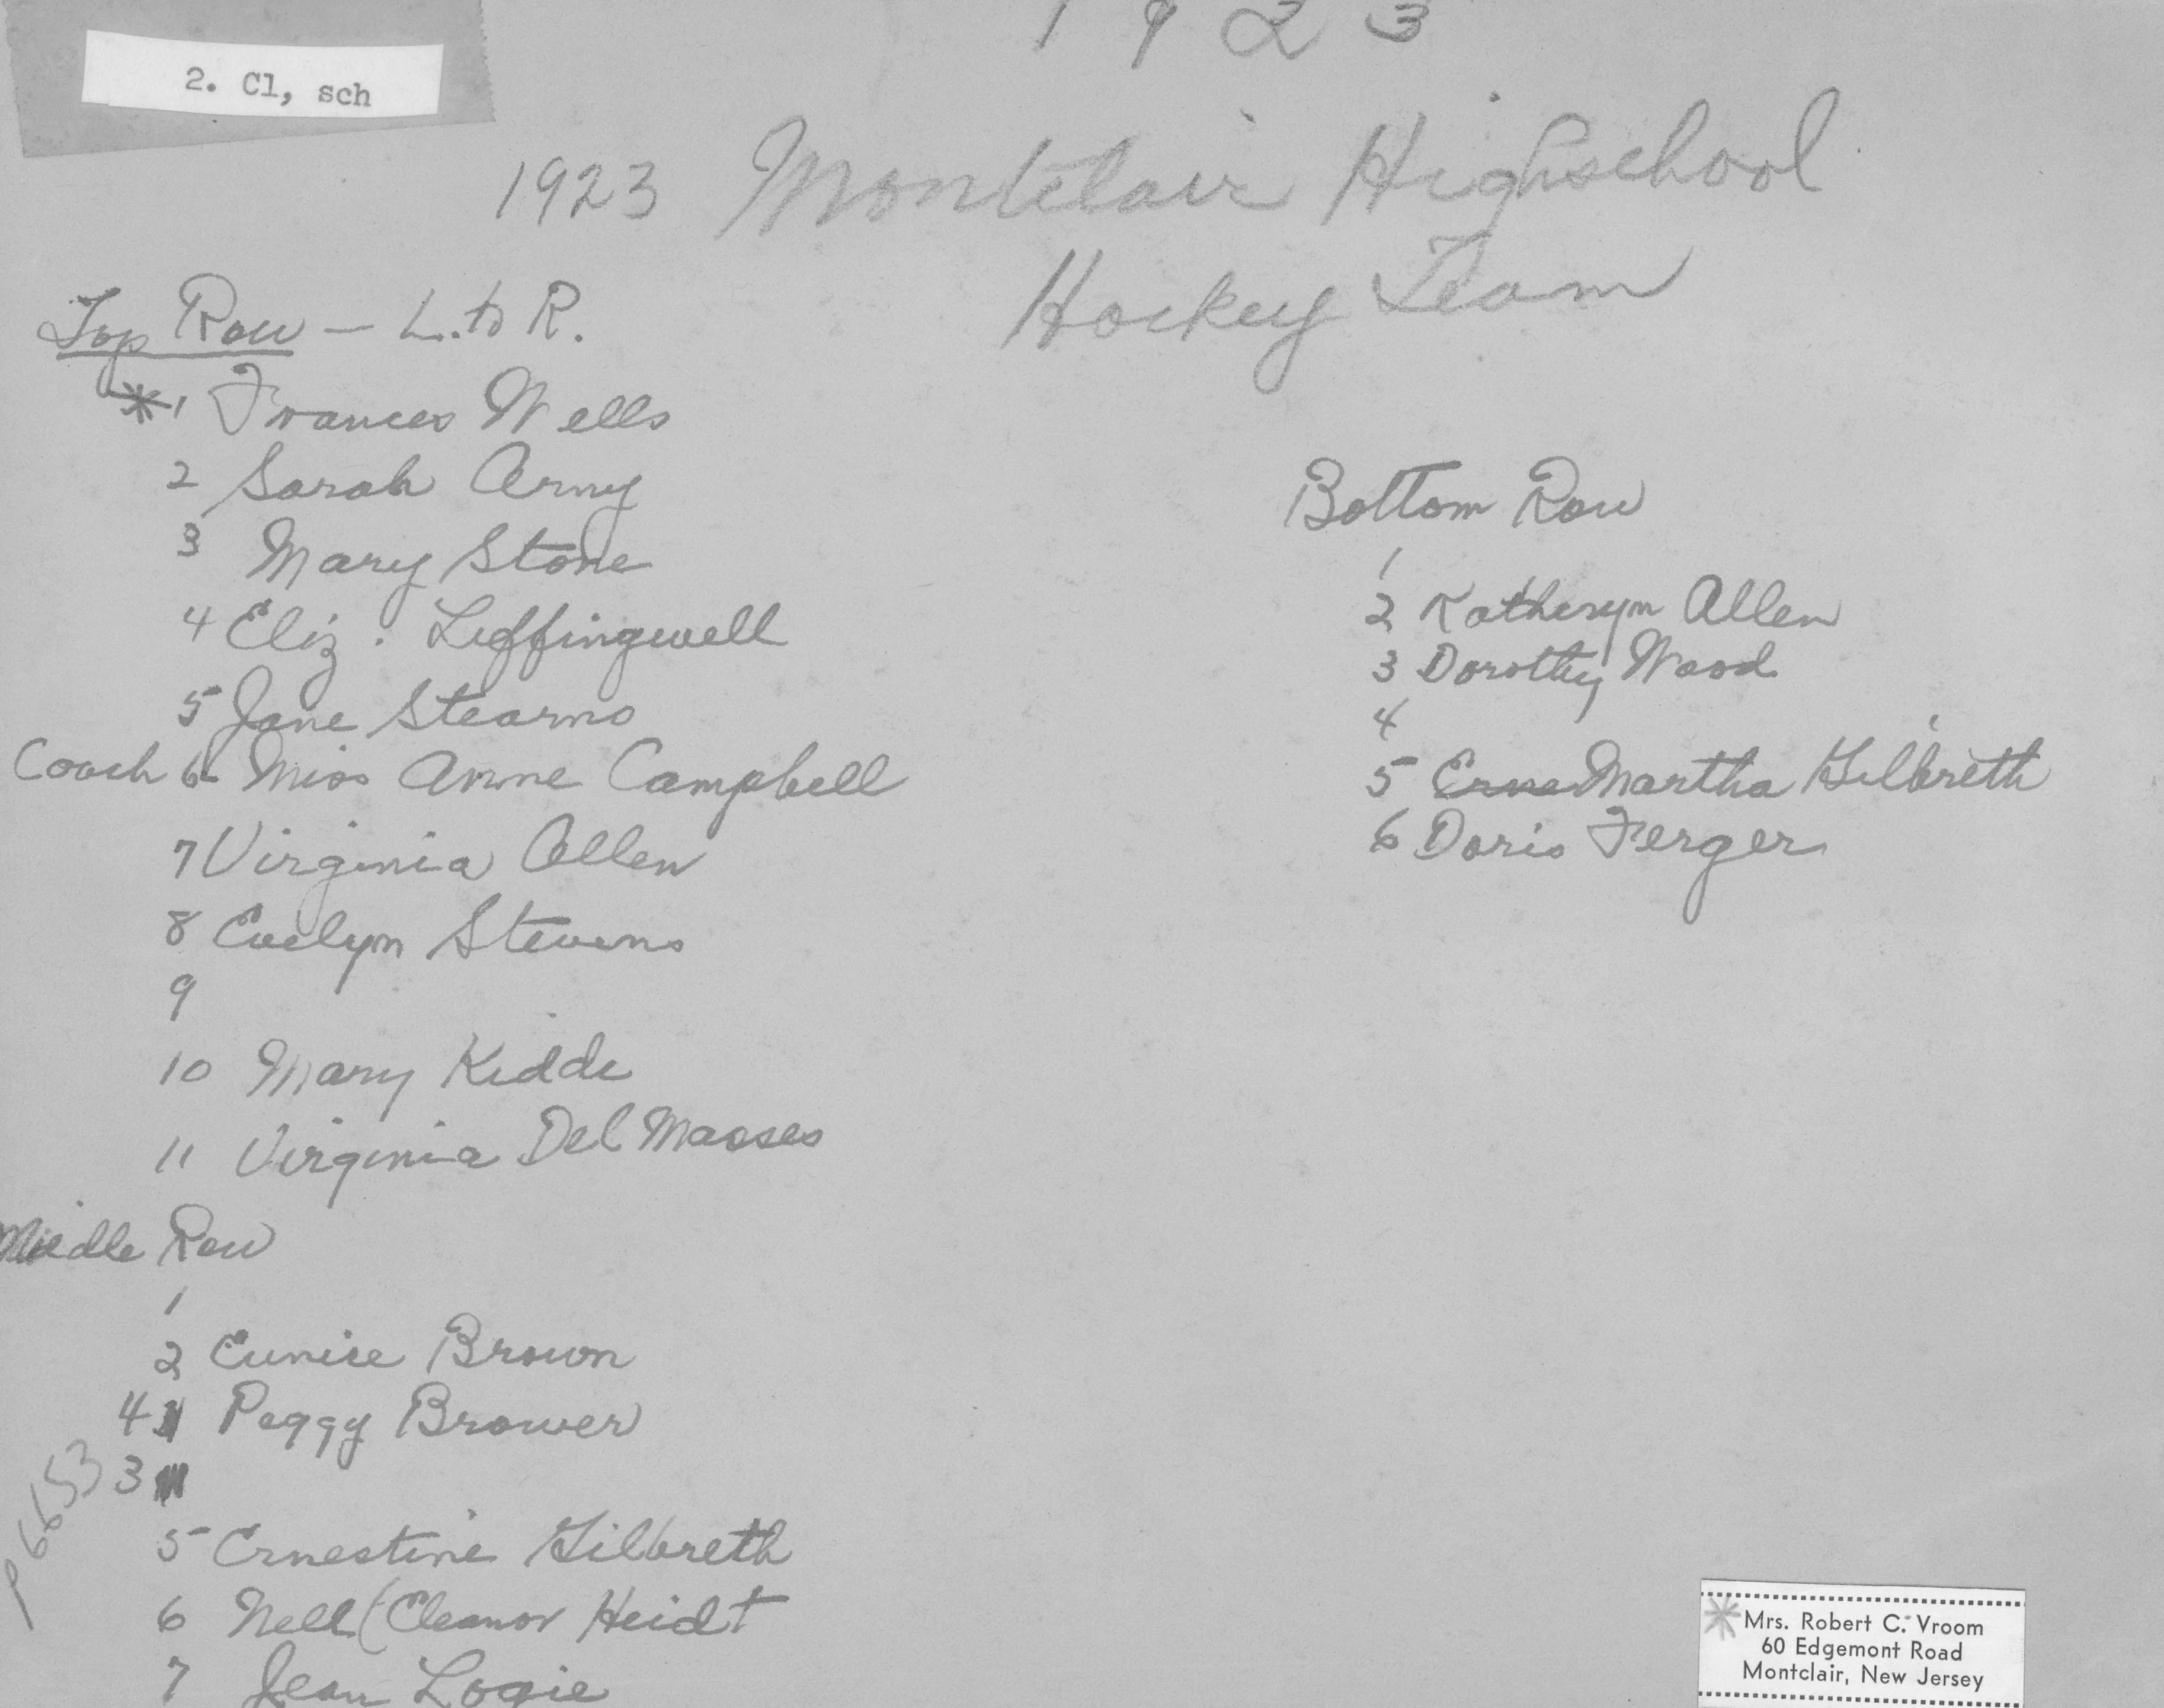 1923
2. Cl, sch
1923 Montclair Highschool
Hockey Team
Top Row – L. to R.
* 1 Frances Wells
2 Sarah Army
3 Mary Stone
4 Eliz. Leffingwell
5 Jane Stearns
Coach 6 Miss Anne Campbell
7 Virginia Allen
8 Evelyn Stevens
9
10 Mary Kidde
11 Virginia Del Masses
Middle Row
1
2 Eunice Brown
4 Peggy Brower
3
5 Ernestine Gilbreth
6 Nell (Eleanor Heidt
7 Jean Logie
P6653
Bottom Row
1
2 Katheryn Allen
3 Dorothy Wood
4
5 Erne Martha Gilbreth
6 Doris Ferger
* Mrs. Robert C. Vroom
60 Edgemont Road
Montclair, New Jersey